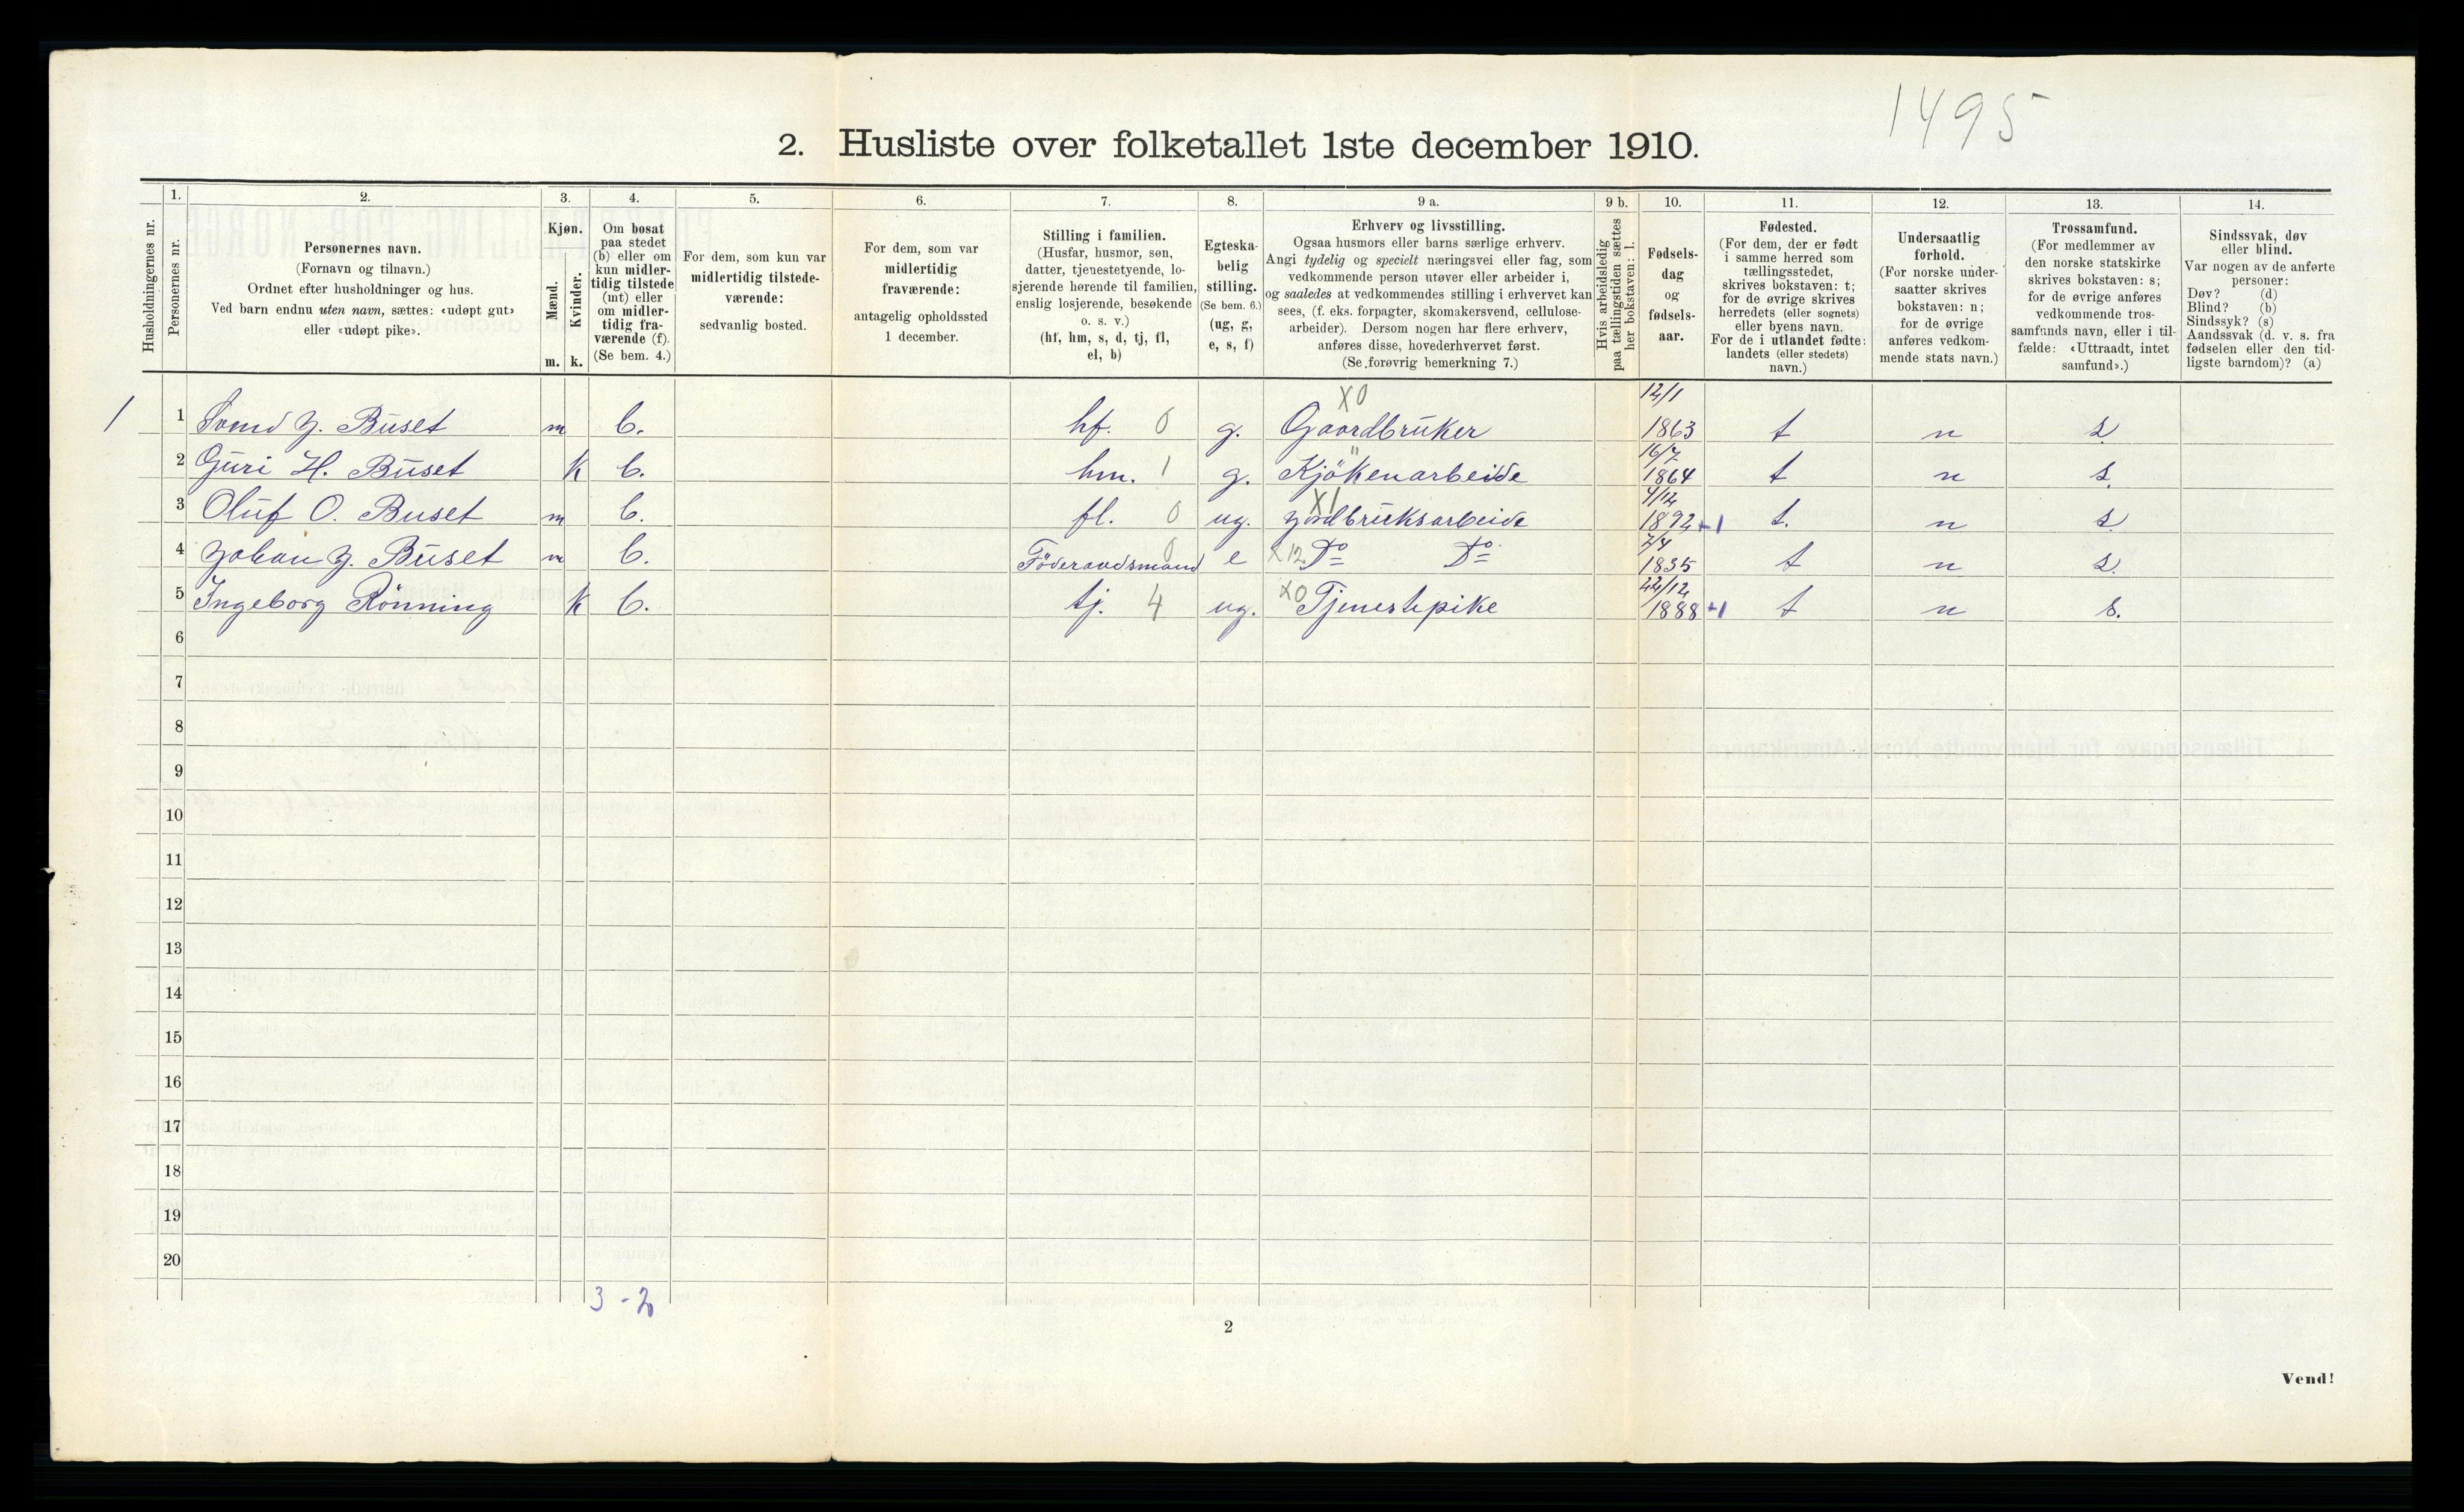 1495
2. Husliste over folketallet 1ste december 1910.
1. 2. 3. 4. 5. 6. 7. 8. 9 a. 9 b. 10. 11. 12. 13. 14.
Husholdningernes nr.
Personernes nr.
Personernes navn.
(Fornavn og tilnavn.)
Ordnet efter husholdninger og hus.
Ved barn endnu uten navn, sættes: «udøpt gut»
eller «udøpt pike».
Kjøn.
Mænd.
Kvinder.
m. k.
Om bosat
paa stedet
(b) eller om
kun midler-
tidig tilstede
(mt) eller
om midler-
tidig fra-
værende (f).
(Se bem. 4.)
For dem, som kun var
midlertidig tilstede-
værende:
sedvanlig bosted.
For dem, som var
midlertidig
fraværende:
antagelig opholdssted
1 december.
Stilling i familien.
(Husfar, husmor, søn,
datter, tjenestetyende, lo-
sjerende hørende til familien,
enslig losjerende, besøkende
o. s. v.)
(hf, hm, s, d, tj, fl,
el, b)
Egteska-
belig
stilling.
(Se bem. 6.)
(ug, g,
e, s, f)
Erhverv og livsstilling.
Ogsaa husmors eller barns særlige erhverv.
Angi tydelig og specielt næringsvei eller fag, som
vedkommende person utøver eller arbeider i,
og saaledes at vedkommendes stilling i erhvervet kan
sees, (f. eks. forpagter, skomakersvend, cellulose-
arbeider). Dersom nogen har flere erhverv,
anføres disse, hovederhvervet først.
(Se forøvrig bemerkning 7.)
Hvis arbeidsledig
paa tællingstiden sættes
her bokstaven: l.
Fødsels-
dag
og
fødsels-
aar.
Fødested.
(For dem, der er født
i samme herred som
tællingsstedet,
skrives bokstaven: t;
for de øvrige skrives
herredets (eller sognets)
eller byens navn.
For de i utlandet fødte:
landets (eller stedets)
navn.)
Undersaatlig
forhold.
(For norske under-
saatter skrives
bokstaven: n;
for de øvrige
anføres vedkom-
mende stats navn.)
Trossamfund.
(For medlemmer av
den norske statskirke
skrives bokstaven: s;
for de øvrige anføres
vedkommende tros-
samfunds navn, eller i til-
fælde: «Uttraadt, intet
samfund».)
Sindssvak, døv
eller blind.
Var nogen av de anførte
personer:
Døv? (d)
Blind? (b)
Sindssyk? (s)
Aandssvak (d. v. s. fra
fødselen eller den tid-
ligste barndom)? (a)
1 1 J. Buset m b. hf. 0 g. X0 Gaardbruker 12/1 1863 t n s
2 Guri H. Buset k b. hm. 1 g. Kjökenarbeide 16/7 1864 t n s.
3 Oluf O. Buset m b. fl. 0 ug. X1 jordbruksarbeide 4/12 1892 +1 t. n s
4 Johan J. Buset m b. Föderaadsmand 0 e X12 Do Do 7/4 1835 t n s.
5 Ingeborg Rönning k b. tj. 4 ug. X0 Tjenestepike 22/12 1888 +1 t n s.
6
7
8
9
10
11
12
13
14
15
16
17
18
19
20
3 - 2
2
Vend!